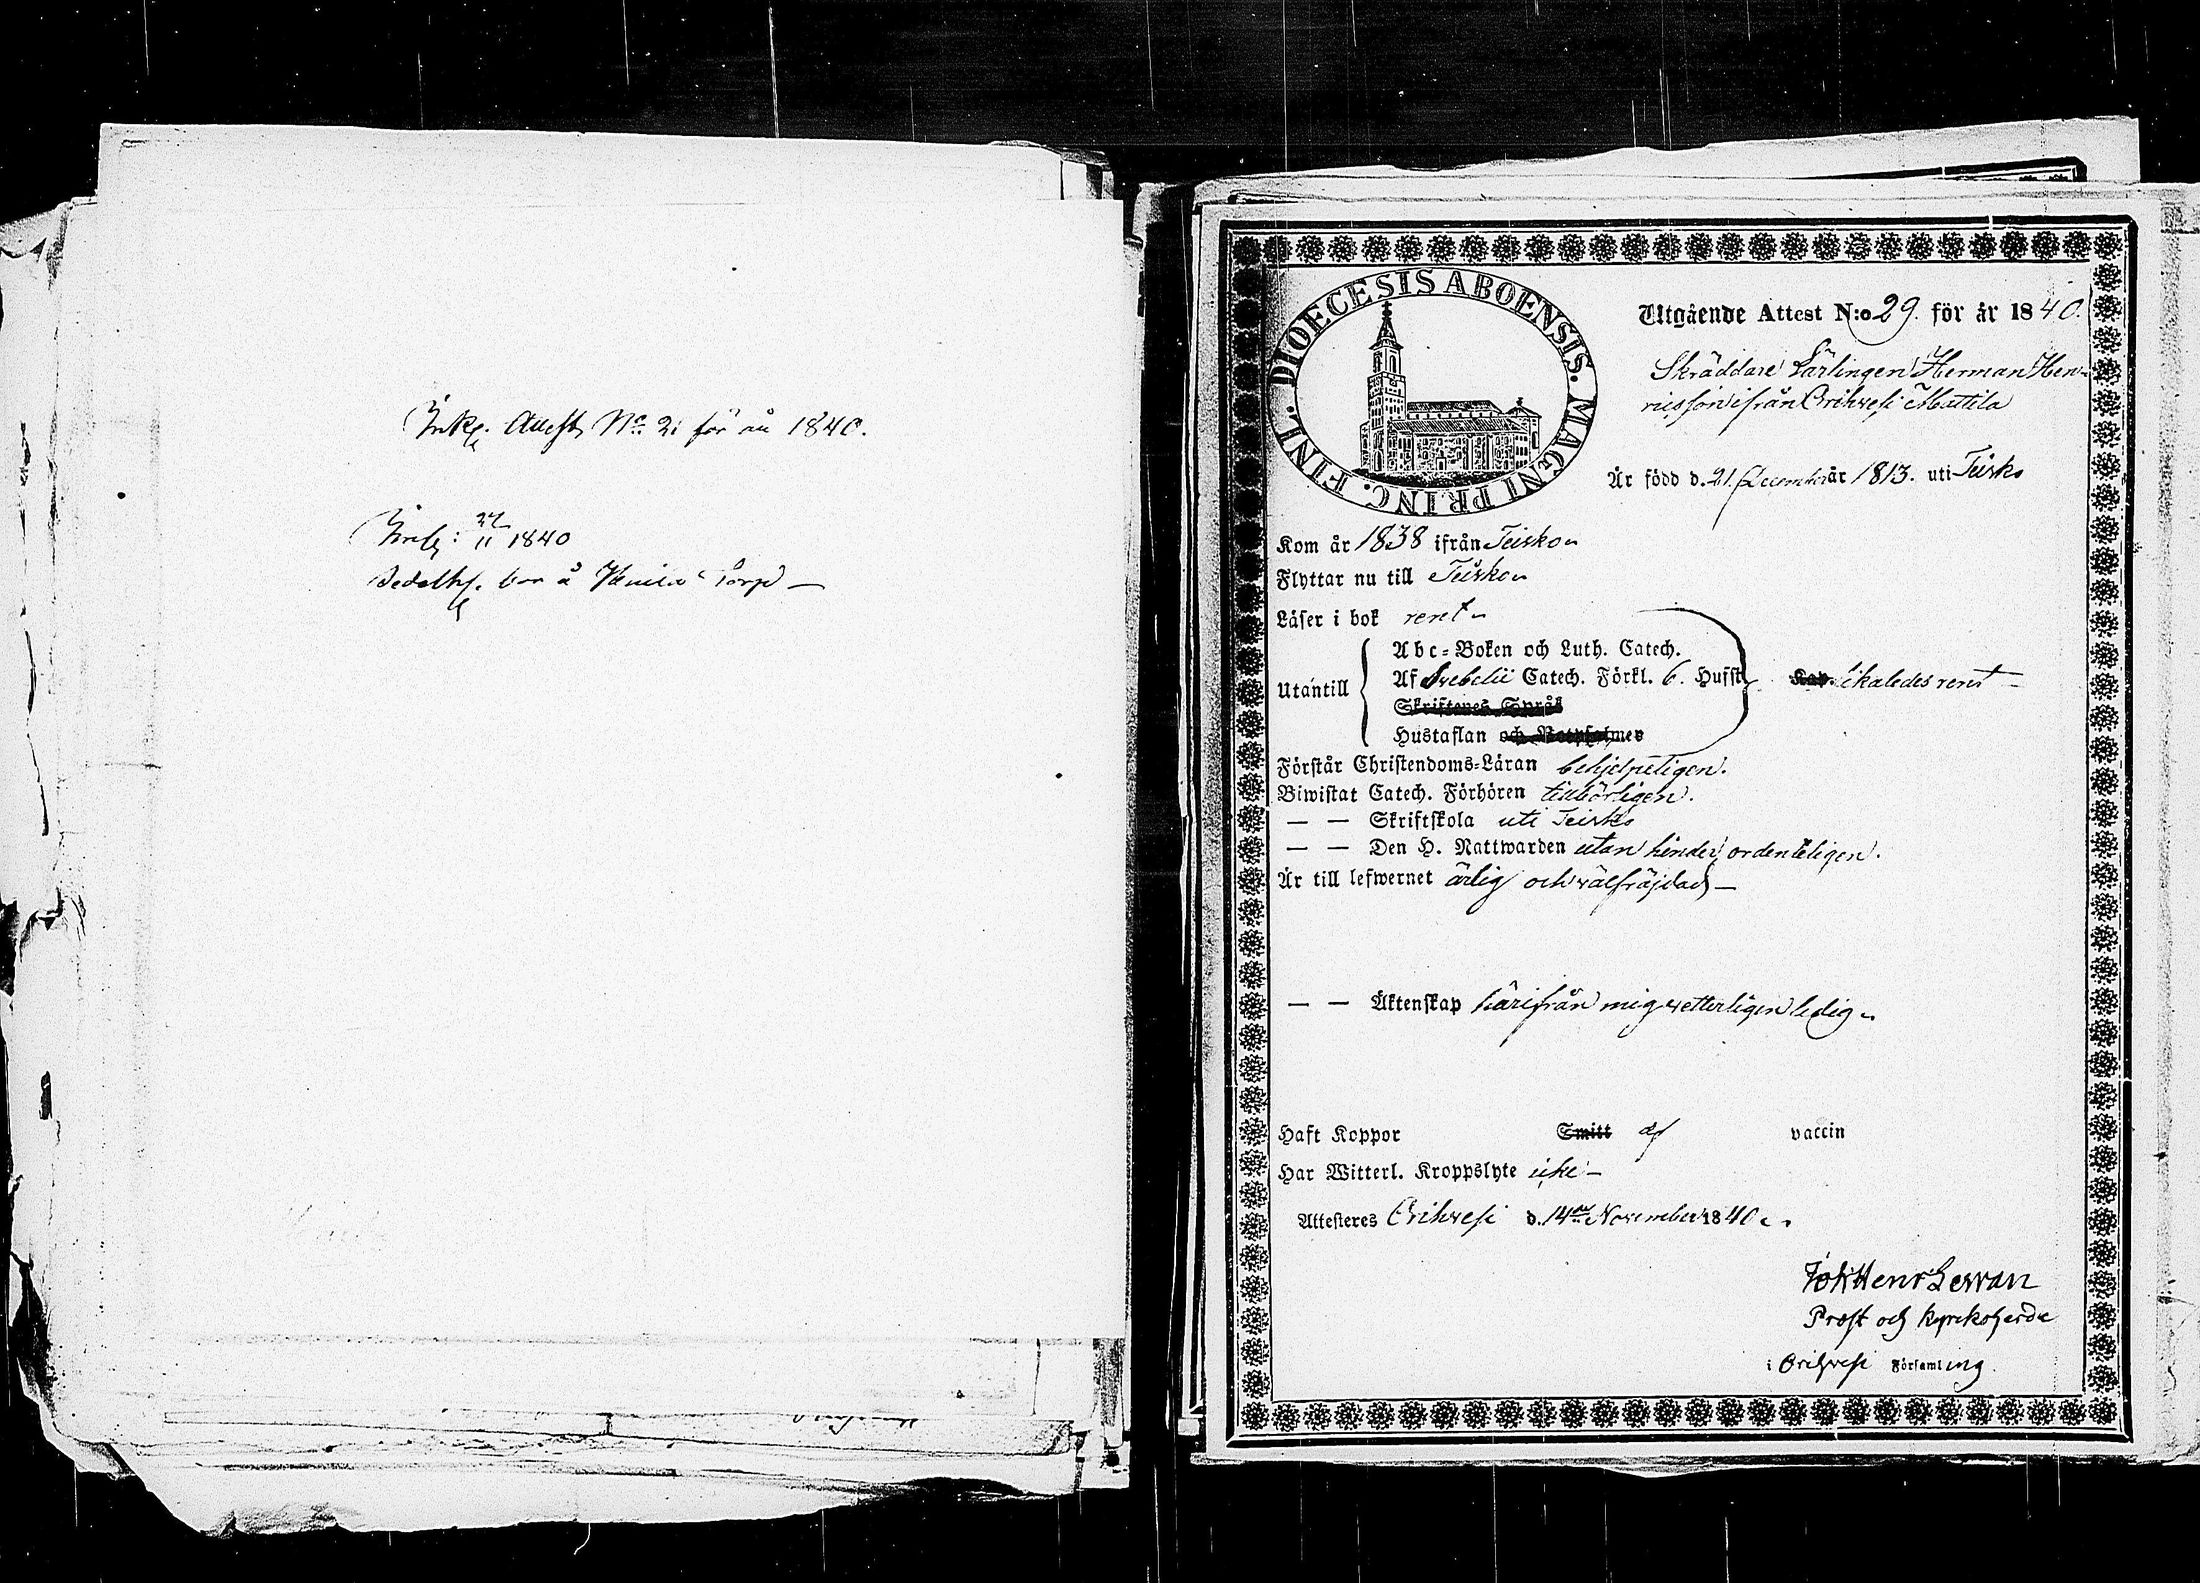 Ink. Attest No 21 för år 1840.
Inf: 27/11 1840
bor å Torp —
DIOECESIS ABOENSIS. MAGNI PRINC. FINL.
Utgående Attest N:o 29. för år 1840.
Skräddare Lärlingen Herman Hen-
ricsson ifrån Orihvesi Mattila
Är född d. 21. December år 1813. uti Teisko
Kom år 1838 ifrån Teisko
Flyttar nu till Teisko
Läser i bok rent
Utantill
Abc-Boken och Luth. Catech.
Af Svebelii Catech. Förkl. 6. Hufst. Kap. likaledes rent —
Skriftenes Språk
Hustaflan och Botpsalmer
Förstår Christendoms-Läran behjelpeligen.
Biwistat Catech. Förhören tillbörligen.
— — Skriftskola uti Teisko
— — Den H. Nattwarden utan hinder, ordenteligen.
Är till lefwernet ärlig och välfräjdad —
— — Äktenskap härifrån mig vetterligen ledig
Haft Koppor Smitt af vaccin
Har Witterl. Kroppslyte icke —
Attesteres Orihvesi d. 14de November 1840
Joh Henr Lewan
Prost och Kyrkoherde
i Orihvesi Församling.